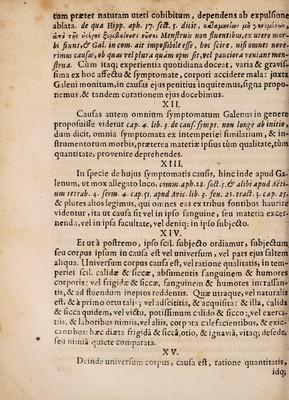 tum præter naturam uteri cohibitum, dependens ab expulsione
ablata. de qua Hipp. aph. 57. sect. 5. dicit,
Menstruis non fluentibus, ex utero mor-
bi fiunt, & Gal. in com. ait impoßibile esse, hoc scire, nisi omnes nove-
rimus causas, ob quas vel plura quàm opus sit, vel pauciora veniant men-
strua. Cùm itaq; experientia quotidiana docet, varia & gravis-
sima ex hoc affectu & symptomate, corpori accidere mala: juxta
Galeni monitum, in causas ejus penitius inquiremus, signa propo-
nemus, & tandem curationem ejus docebimus.
XII.
Causas autem omnium symptomatum Galenus in genere
proposuisse videtur cap. 4. lib. 3. de cauf. sympt. non longè ab initio,
dum dicit, omnia symptomata ex intemperiei similarium, & in-
strumentorum morbis, præterea materiæ ipsius tùm qualitate, tùm
quantitate, provenire deprehendes.
XIII.
In specie de hujus symptomatis causis, hinc inde apud Ga-
lenum, ut mox allegato loco, comm. aph. 28. sect. 5. & alibi apud Aëti-
um tetrab. 4. serm. 4. cap. 51. apud Avic. lib. 3. fen. 21. tract. 3. cap. 25.
& plures altos legimus, qui omnes eas ex tribus fontibus haurire
videntur, ita ut causa sit vel in ipso sanguine, seu materia excer-
nenda, vel in ipsa facultate, vel deniq; in ipso subjecto.
XIV.
Et ut à postremo, ipso scil. subjecto ordiamur, subjectum
seu corpus ipsum in causa est vel universum, vel pars ejus saltem
aliqua. Universum corpus causa est, vel ratione qualitatis, in tem-
periei scil. calidæ & siccæ, absumentis sanguinem & humores
corporis: vel frigidæ & siccæ, sanguinem & humores incrassan-
tis, & ad fluendum ineptos reddentis. Quæ utraque, vel naturalis
est, & à primo ortu tali; vel adscititia, & acquisita: & illa, calida
& sicca quidem, vel victu, potissimum calido & sicco; vel exerciti-
is, & laboribus nimiis, vel aliis, corpora calefacientibus, & exic-
cantibus: hæc diæta frigidâ & siccâ, otio, & ignaviâ, vitaq; deside,
seu nimiâ quiete comparata.
XV.
Deinde universum corpus, causa est, ratione quantitatis,
idq;